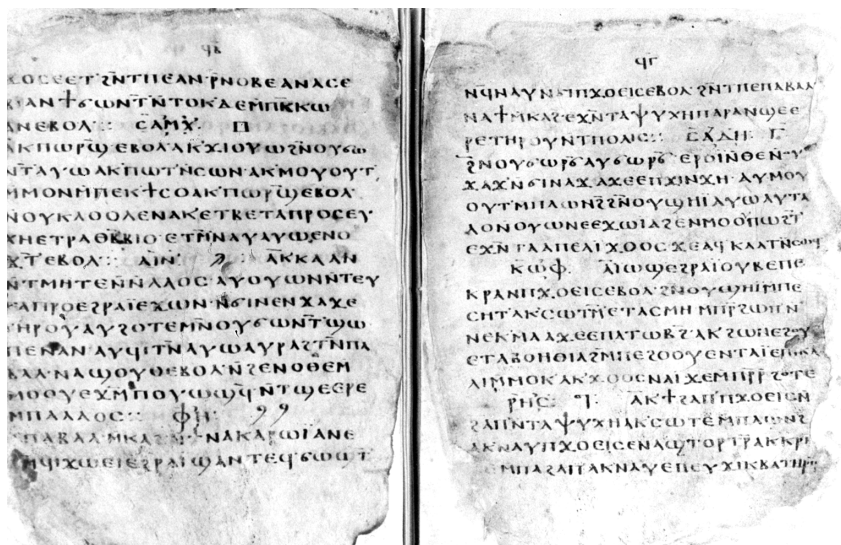 ϥⲃ
ϫⲟⲥⲉⲉⲧϩⲛⲧⲡⲉⲁⲛⲣ̄ⲛⲟⲃⲉⲁⲛⲁⲥⲉ
ⲁⲛϯϭⲱⲛⲧⲛ̄ⲧⲟⲕⲇⲉⲙ̄ⲡⲕⲕⲱ
ⲁⲛⲉⲃⲟⲗ: ⲥⲁⲙⲭ
ⲁⲕⲡⲱⲣϣⲉⲃⲟⲗⲁⲕϫⲓⲟⲩⲱϩⲛ̄ⲟⲩϭⲱ
ⲛⲧⲁⲩⲱⲁⲕⲡⲱⲧⲛ̄ⲥⲱⲛⲁⲕⲙⲟⲩⲟⲩⲧ
ⲙⲙⲟⲛⲙ̄ⲡⲉⲕϯⲥⲟⲁⲕⲡⲱⲣϣⲉⲃⲟⲗ
ⲛⲟⲩⲕⲗⲟⲟⲗⲉⲛⲁⲕⲉⲧⲃⲉⲧⲁⲡⲣⲟⲥⲉⲩ
ⲭⲏⲉⲧⲣⲁⲑⲃⲃⲓⲟⲉⲧⲙ̄ⲛⲁⲩⲁⲩⲱⲉⲛⲟ
ϫⲧ̄ⲉⲃⲟⲗ: ⲁⲓⲛ ⲁⲕⲕⲁⲁⲛ
ⲛ̄ⲧⲙⲏⲧⲉⲛ̄ⲛ̄ⲗⲁⲟⲥⲁⲩⲟⲩⲱⲛⲛ̄ⲧⲉⲩ
ⲧⲁⲡⲣⲟⲉϩⲣⲁⲓⲉϫⲱⲛⲛ̄ϭⲓⲛⲉⲛϫⲁϫⲉ
ⲧⲏⲣⲟⲩⲁⲩϩⲟⲧⲉⲙⲛ̄ⲟⲩϭⲱⲛⲧ̄ϣⲱ
ⲡⲉⲛⲁⲛⲁⲩϥⲓⲧⲛ̄ⲁⲩⲱⲁⲩⲣⲁϩⲧⲛ̄ⲡⲁ
ⲃⲁⲗⲛⲁϣⲟⲩⲑⲉⲃⲟⲗⲛ̄ϩⲉⲛⲟⲑⲉⲙ
ⲙⲟⲟⲩⲉϫⲙ̄ⲡⲟⲩⲱϣϥ̄ⲛ̄ⲧϣⲉⲉⲣⲉ
ⲙⲡⲁⲗⲁⲟⲥ: ⲫⲏ
ⲡⲁⲃⲁⲗⲙ̄ⲕⲁϩ ϯⲛⲁⲕⲁⲣⲱⲓⲁⲛⲉ
ϥⲓϫⲱⲉⲓⲉϩⲣⲁⲓϣⲁⲛⲧⲉϥϭⲱϣⲧ
ϥⲅ
ⲛϥ̄ⲛⲁⲩⲛ̄ϭⲓⲡϫⲟⲉⲓⲥⲉⲃⲟⲗϩⲛ̄ⲧⲡⲉⲡⲁⲃⲁⲗ
ⲛⲁϯⲙ̄ⲕⲁϩⲉϫⲛ̄ⲧⲁⲯⲩⲭⲏⲡⲁⲣⲁⲛ̄ϣⲉⲉ
ⲣⲉⲧⲏⲣⲟⲩⲛ̄ⲧⲡⲟⲗⲓⲥ: ⲥⲁⲇⲏ
ϩⲛ̄ⲟⲩϭⲱⲣϭ̄ⲁⲩϭⲱⲣϭ̄ⲉⲣⲟⲓⲛ̄ⲑⲉⲛ̄ⲟⲩ
ϫⲁϫⲛ̄ϭⲓⲛⲁϫⲁϫⲉⲉⲡϫⲓⲛϫⲏⲁⲩⲙⲟⲩ
ⲟⲩⲧⲙ̄ⲡⲁⲱⲛϩ̄ϩⲛ̄ⲟⲩϣⲏⲓⲁⲩⲱⲁⲩⲧⲁ
ⲗⲟⲛ̄ⲟⲩⲱⲛⲉⲉϫⲱⲓⲁϩⲉⲛⲙⲟⲟⲩⲡⲱϩⲧ̄
ⲉϫⲛ̄ⲧⲁⲁⲡⲉⲁⲓϫⲟⲟⲥϫⲉⲁϥⲕⲁⲁⲧⲛ̄ⲥⲱϥ
ⲕⲱⲫ ⲁⲓⲱϣⲉϩⲣⲁⲓⲟⲩⲃⲉⲡⲉ
ⲕⲣⲁⲛⲡϫⲟⲉⲓⲥⲉⲃⲟⲗϩⲛ̄ⲟⲩϣⲏⲓⲙ̄ⲡⲉ
ⲥⲏⲧⲁⲕⲥⲱⲧⲙ̄ⲉⲧⲁⲥⲙⲏⲙ̄ⲡⲣ̄ϩⲱⲡⲛ̄
ⲛⲉⲕⲙⲁⲁϫⲉⲉⲡⲁⲧⲱⲃϩ̄ⲁⲕϩⲱⲛⲉϩⲟⲩ
ⲉⲧⲁⲃⲟⲏⲑⲓⲁϩⲙ̄ⲡⲉϩⲟⲟⲩⲉⲛⲧⲁⲓⲉⲡⲓⲕⲁ
ⲗⲓⲙ̄ⲙⲟⲕⲁⲕϫⲟⲟⲥⲛⲁⲓϫⲉⲙ̄ⲡⲣ̄ⲣ̄ϩⲟⲧⲉ
ⲣⲏⲥ ⲁⲕϯϩⲁⲡⲡϫⲟⲉⲓⲥⲛ̄
ϩⲁⲡⲛ̄ⲧⲁⲯⲩⲭⲏⲁⲕⲥⲱⲧⲉⲙ̄ⲡⲁⲱⲛϩ̄
ⲁⲕⲛⲁⲩⲡϫⲟⲉⲓⲥⲉⲛⲁϣⲧⲟⲣⲧⲣ̄ⲁⲕⲕⲣⲓ
ⲙ̄ⲡⲁϩⲁⲡⲁⲕⲛⲁⲩⲉⲡⲉⲩϫⲓⲕⲃⲁⲧⲏⲣϥ̄